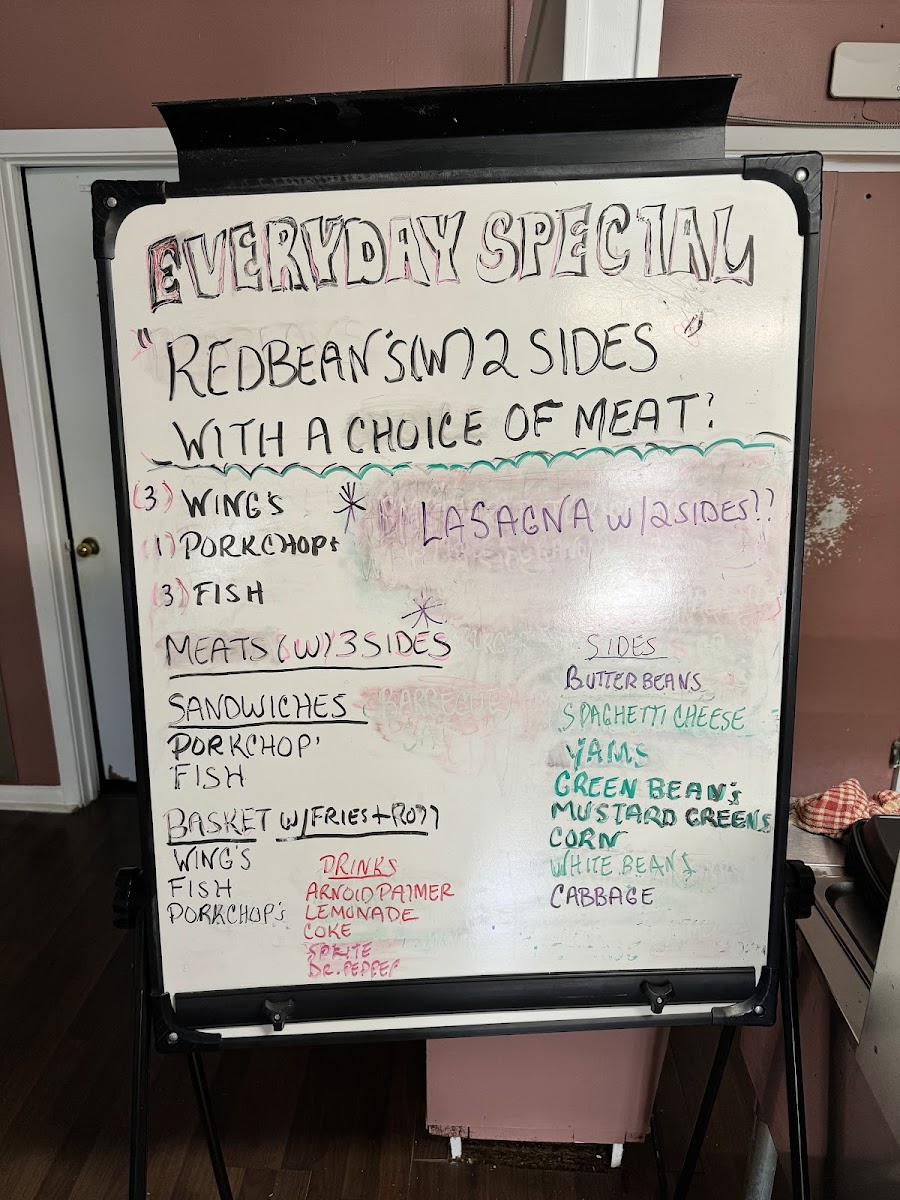 EVERYDAY SPECIAL
"REDBEAN'S (W) 2 SIDES"
WITH A CHOICE OF MEAT?
(3) WING'S
* LASAGNA W/2 SIDES??
(1) PORKCHOPS
(3) FISH
*
MEATS (W) 3 SIDES
SANDWICHES
PORKCHOP'
FISH
BASKET W/FRIES +
WING'S
FISH
PORKCHOP'S
DRINKS
ARNOLD PALMER
LEMONADE
COKE
SPRITE
DR. PEPPER
SIDES
BUTTER BEANS
SPAGHETTI CHEESE
YAMS
GREEN BEAN'S
MUSTARD GREENS
CORN
WHITE BEANS
CABBAGE